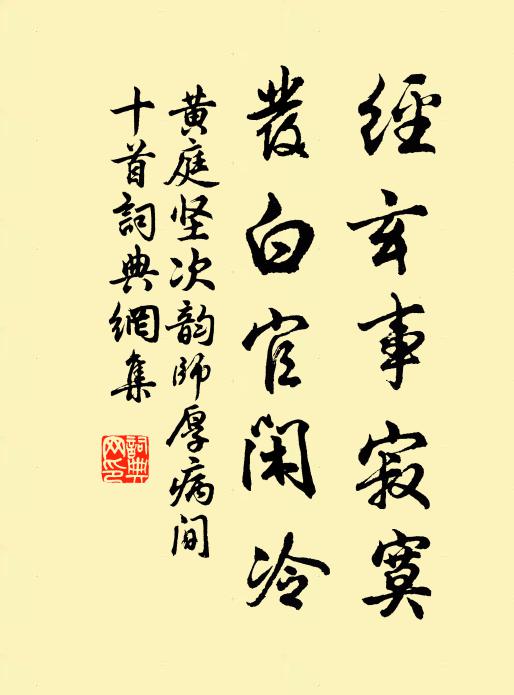 經玄事寂寞
發白官閑冷
黄庭坚次韵师厚病间
十首詞典網集
詞典网印